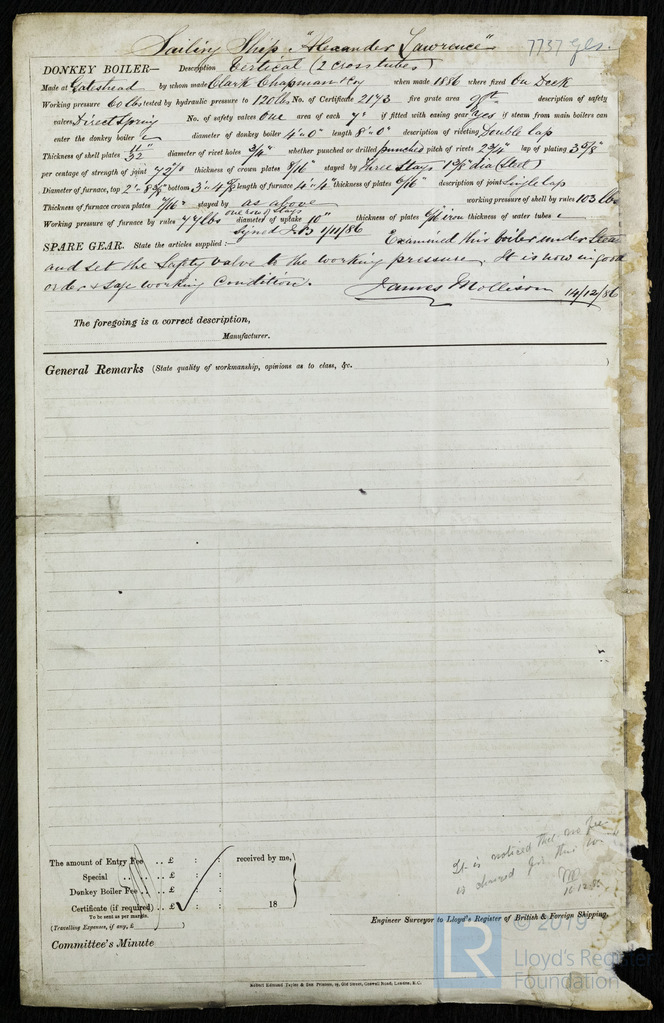 Sailing Ship "Alexander Lawrence" 7737 Gls.
DONKEY BOILER— Description Vertical (2 cross tubes)
Made at Gateshead by whom made Clark Chapman & Co when made 1886 where fixed On Deck
Working pressure 60 lbs tested by hydraulic pressure to 120 lbs No. of Certificate 2173 fire grate area description of safety
valves Direct Spring No. of safety valves One area of each 7" if fitted with easing gear yes if steam from main boilers can
enter the donkey boiler diameter of donkey boiler 4'-0" length 8'-0" description of riveting Double lap
Thickness of shell plates 11/32" diameter of rivet holes 3/4" whether punched or drilled punched pitch of rivets 2 3/4" lap of plating 3 5/8"
per centage of strength of joint 72% thickness of crown plates 7/16" stayed by Three Stays 1 5/8" dia (Steel)
Diameter of furnace, top 2'-8 3/8" bottom 3'-4 7/8" length of furnace 4'-4" thickness of plates 6/16" description of joint Single lap
Thickness of furnace crown plates 7/16" stayed by as above working pressure of shell by rules 103 lbs
Working pressure of furnace by rules 77 lbs one row of stays diameter of uptake 10" thickness of plates iron thickness of water tubes
Signed 1/11/86
SPARE GEAR. State the articles supplied:— Examined this boiler under Steam
and set the Safety valve to the working pressure. It is now in good
order & safe working condition. James Mollison 14/12/86
The foregoing is a correct description,
Manufacturer.
General Remarks (State quality of workmanship, opinions as to class, &c.)
It is noticed that no fee
is charged for this
16.12.86
The amount of Entry Fee .. £ : : received by me,
Special .. .. £ : :
Donkey Boiler Fee .. £ : :
Certificate (if required) .. £ : : 18
To be sent as per margin.
(Travelling Expenses, if any, £ )
Engineer Surveyor to Lloyd's Register of British & Foreign Shipping.
Committee's Minute
Robert Edmund Taylor & Son Printers, 19, Old Street, Goswell Road, London, E.C.
LR © 2019
Lloyd's Register
Foundation